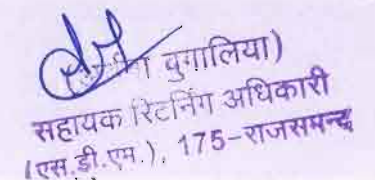 चुगालिया)
सहायक रिटर्निंग अधिकारी
(एस.डी.एम.), 175-राजसमन्द